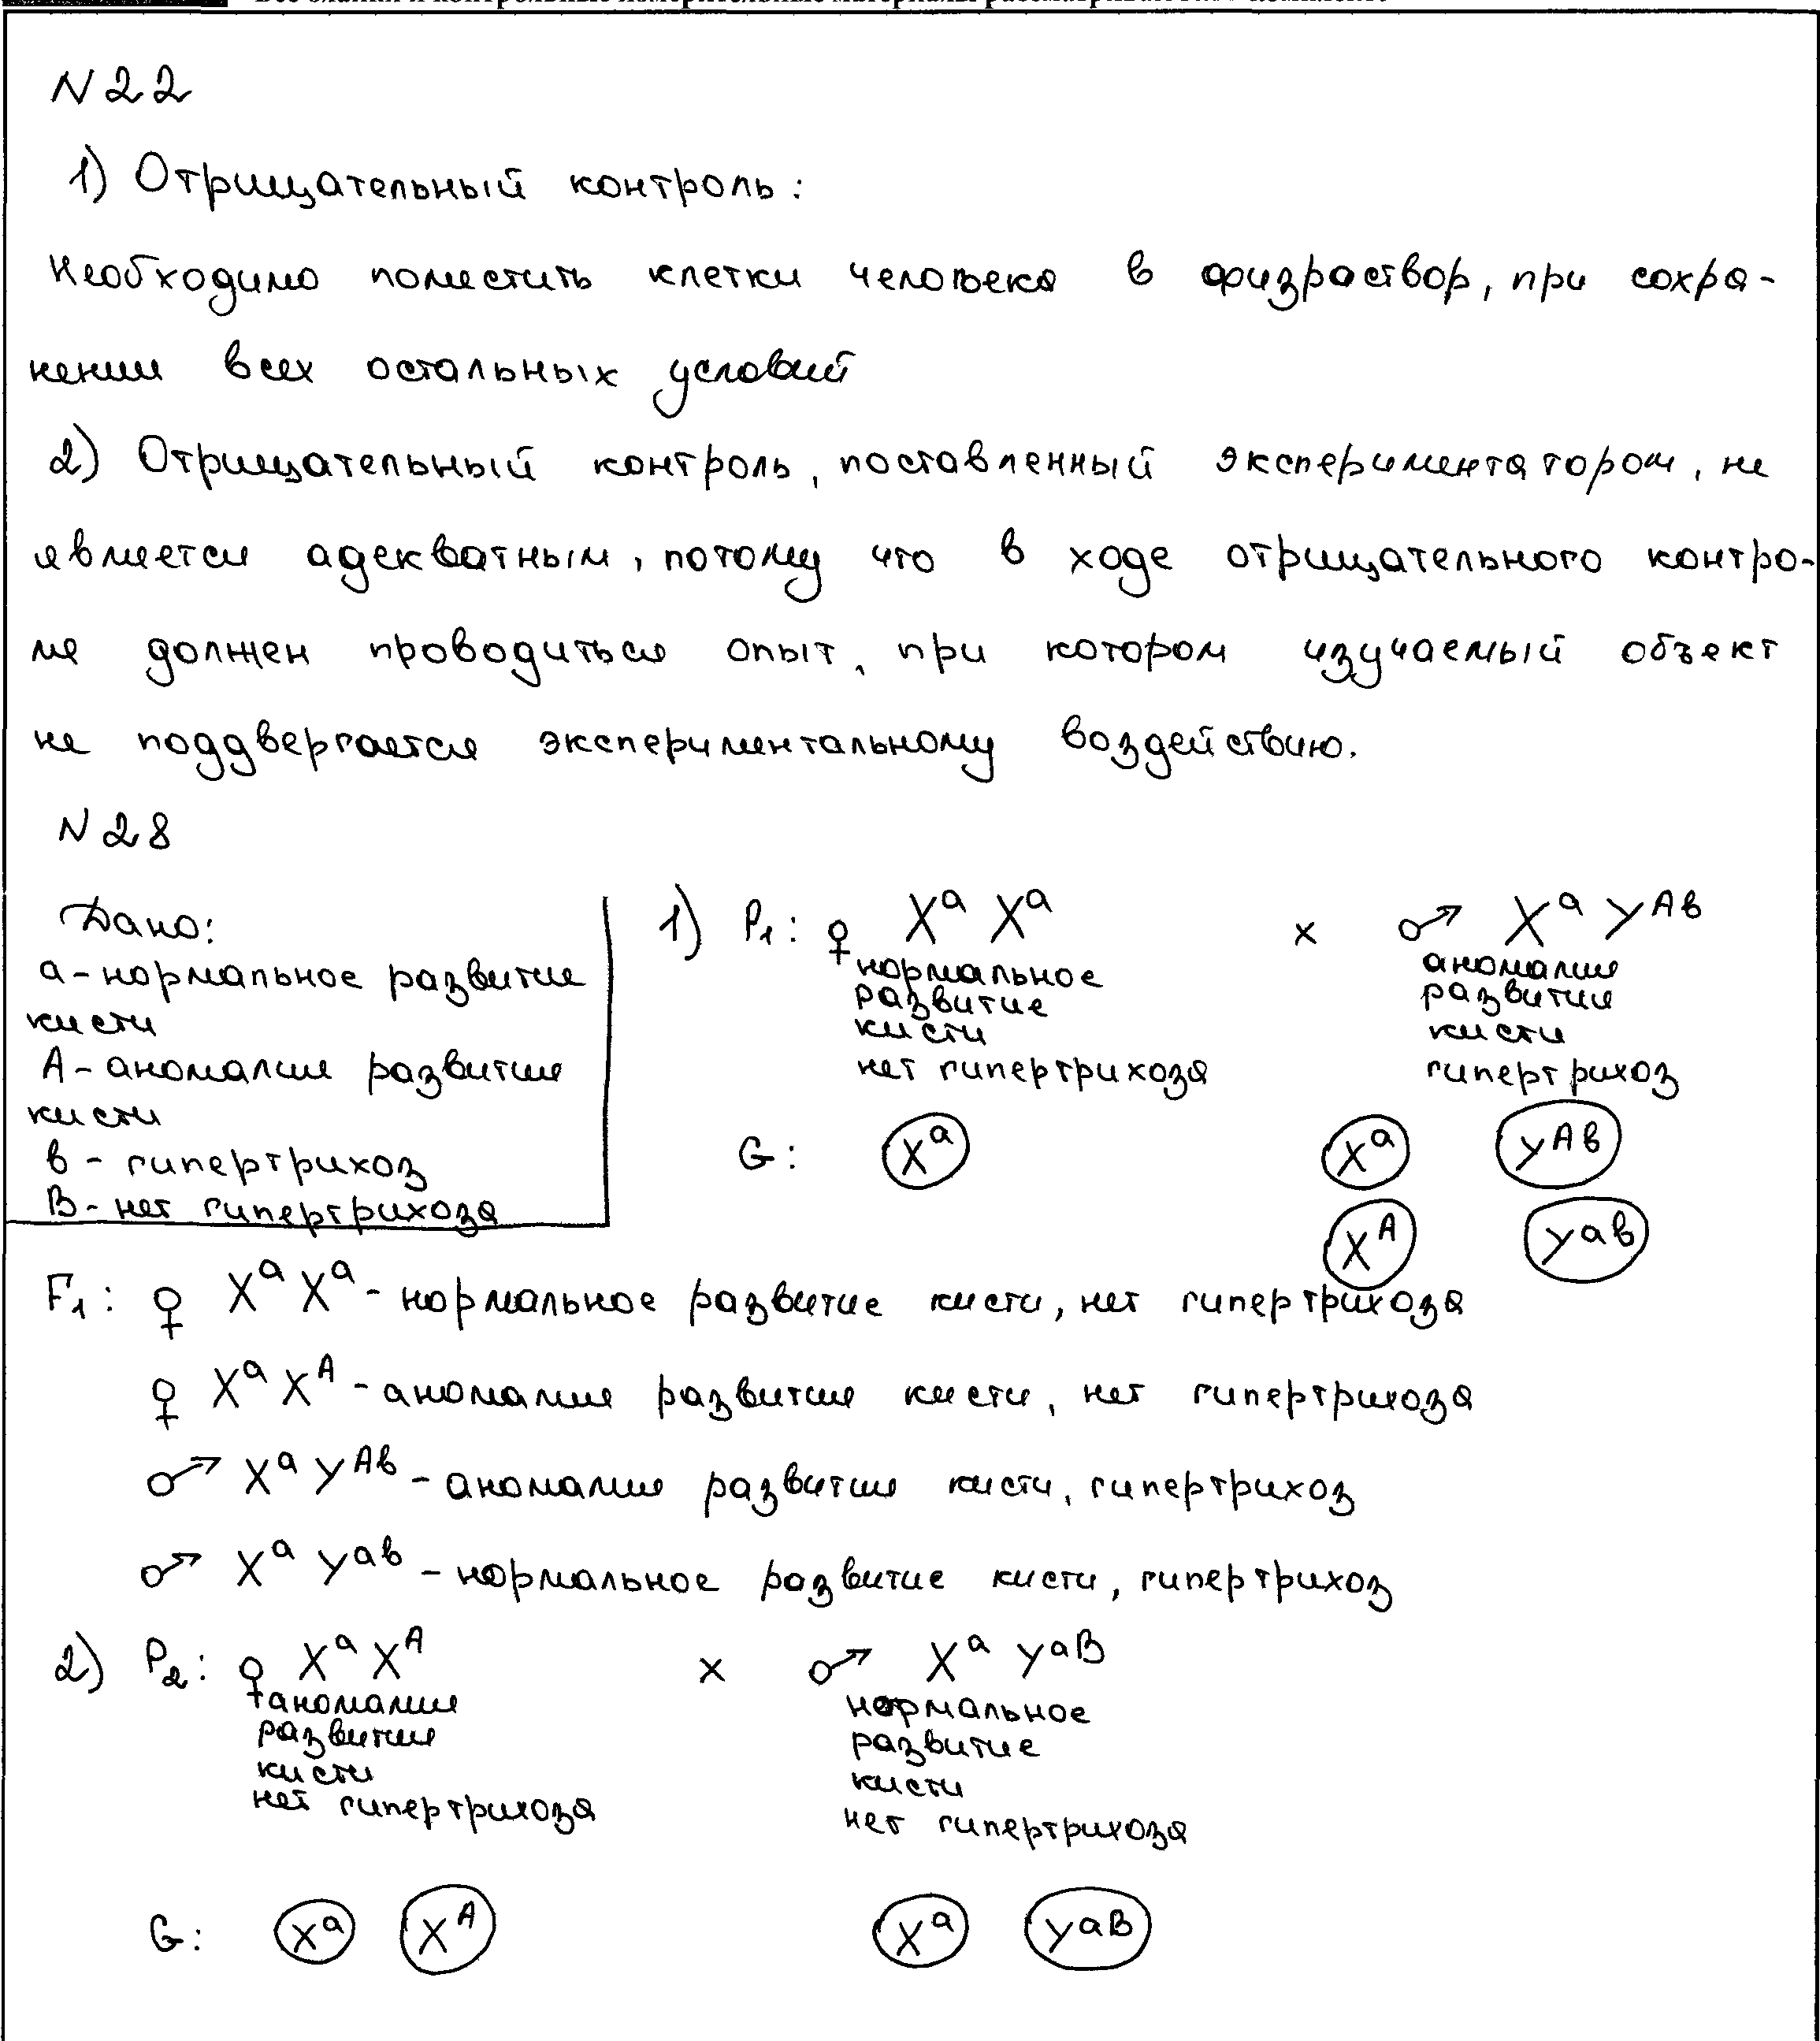 N22
1) Отрицательный контроль:
Необходимо поместить клетки человека в физраствор, при сохра-
нении всех остальных условий
2) Отрицательный контроль, поставленный экспериментатором, не
является адекватным, потому что в ходе отрицательного контро-
ля должен проводиться опыт, при котором изучаемый объект
не поддвергается экспериментальному воздействию.
N28
Дано:
a - нормальное развитие
кисти
A - аномалия развития
кисти
в - гипертрихоз
B - нет гипертрихоза
1) P₁: ♀ Xᵃ Xᵃ × ♂ Xᵃ Yᴬᵇ
нормальное аномалия
развитие развития
кисти кисти
нет гипертрихоза гипертрихоз
G: Xᵃ Xᵃ Yᴬᵇ
Xᴬ Yᵃᵇ
F₁: ♀ Xᵃ Xᵃ - нормальное развитие кисти, нет гипертрихоза
♀ Xᵃ Xᴬ - аномалия развития кисти, нет гипертрихоза
♂ Xᵃ Yᴬᵇ - аномалия развития кисти, гипертрихоз
♂ Xᵃ Yᵃᵇ - нормальное развитие кисти, гипертрихоз
2) P₂: ♀ Xᵃ Xᴬ × ♂ Xᵃ Yᵃᴮ
аномалия нормальное
развития развитие
кисти кисти
нет гипертрихоза нет гипертрихоза
G: Xᵃ Xᴬ Xᵃ Yᵃᴮ